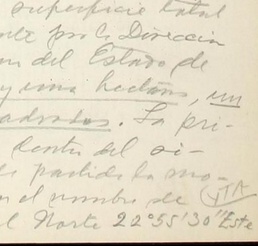 superficie total
nte por la Direccion
on del Estado de
y una hectáras, un
adrados. La pri-
dentro del si-
partida la mo-
n el nombre de
YTA
l Norte 22°55'30" Este